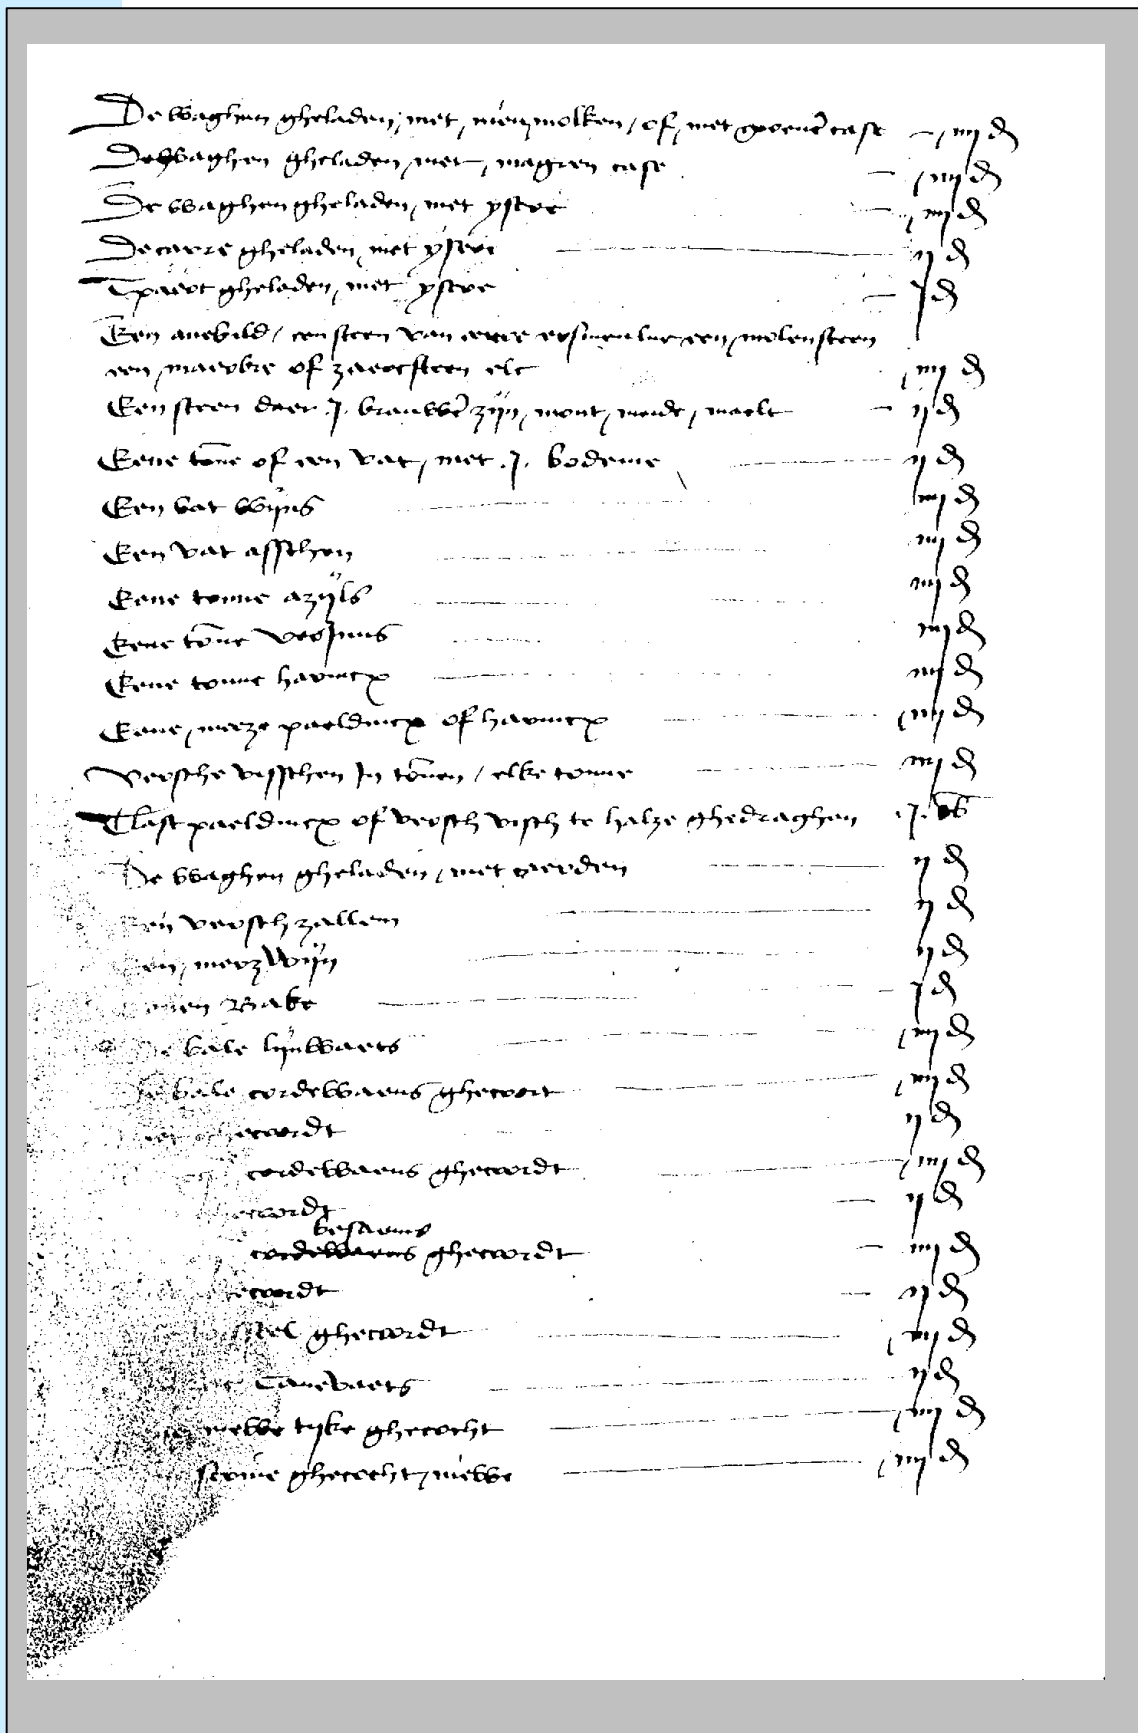 De waghen gheladen met nieumolken of met groene case iiij d
De waghen gheladen met magren case iiij d
De waghen gheladen met ysere iiij d
De carre gheladen met ysere ij d
Tpaert gheladen met ysere j d
Een anebild een steen van eere een molensteen
een maerbre of zaercsteen elc iiij d
Een steen daer j brauwer zijn mout mede maelt ij d
Eene tonne of een vat met .j. bodeme ij d
Een vat wijns iiij d
Een vat asschen iiij d
Eene tonne azijls iiij d
Eene tonne verjuus iiij d
Eene tonne harincx iiij d
Eene meeze paeldincx of harincx iiij d
Versche visschen in tonnen elke tonne iiij d
Tlast paeldincx of versch visch te halze ghedraghen .j. ob
De waghen gheladen met eerden ij d
Een versch zallem ij d
Een meerzwijn ij d
Bake j d
bale lijnwaets iiij d
bale cordewaens ghecoort iiij d
ghecoordt ij d
cordewaens ghecoordt iiij d
ghecoordt ij d
besaens
cordewaens ghecoordt iiij d
ghecoordt ij d
ghecoordt iiij d
Canevaets ij d
niewe tijke ghecocht iiij d
ghecocht niewe iiij d